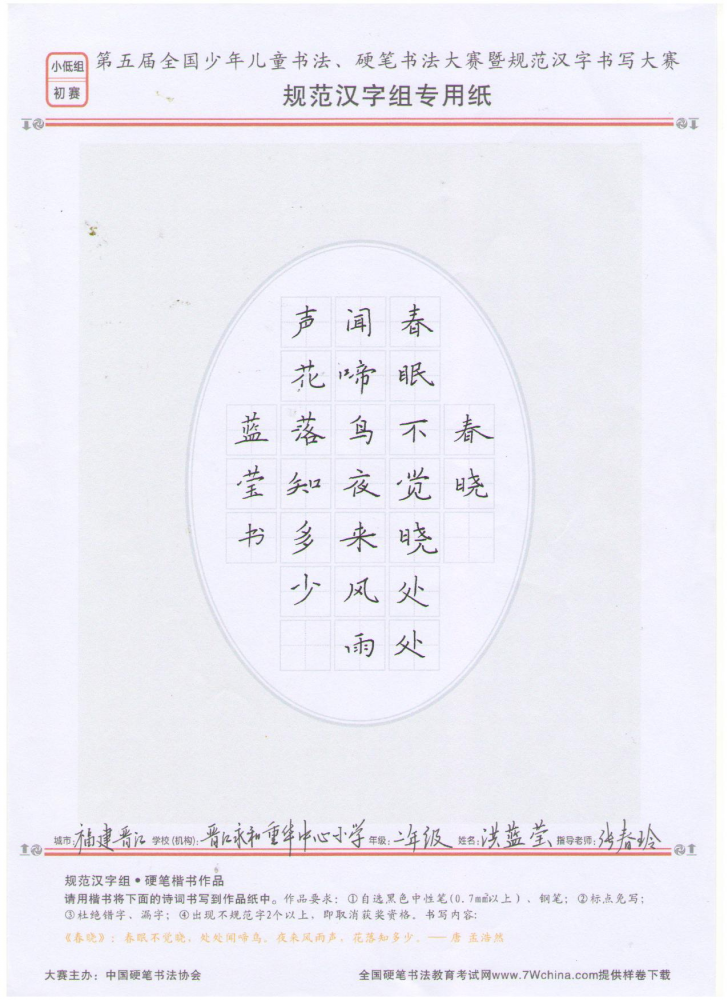 小低组
初赛
第五届全国少年儿童书法、硬笔书法大赛暨规范汉字书写大赛
规范汉字组专用纸
春晓
春眠不觉晓处处
闻啼鸟夜来风雨
声花落知多少
蓝莹书
城市:福建晋江 学校(机构):晋江永和重华中心小学 年级:二年级 姓名:洪蓝莹 指导老师:张春玲
规范汉字组●硬笔楷书作品
请用楷书将下面的诗词书写到作品纸中。作品要求:①自选黑色中性笔(0.7mm以上)、钢笔;②标点免写;
③杜绝错字、漏字;④出现不规范字2个以上,即取消获奖资格。书写内容:
《春晓》:春眠不觉晓,处处闻啼鸟。夜来风雨声,花落知多少。——唐 孟浩然
大赛主办:中国硬笔书法协会
全国硬笔书法教育考试网www.7Wchina.com提供样卷下载